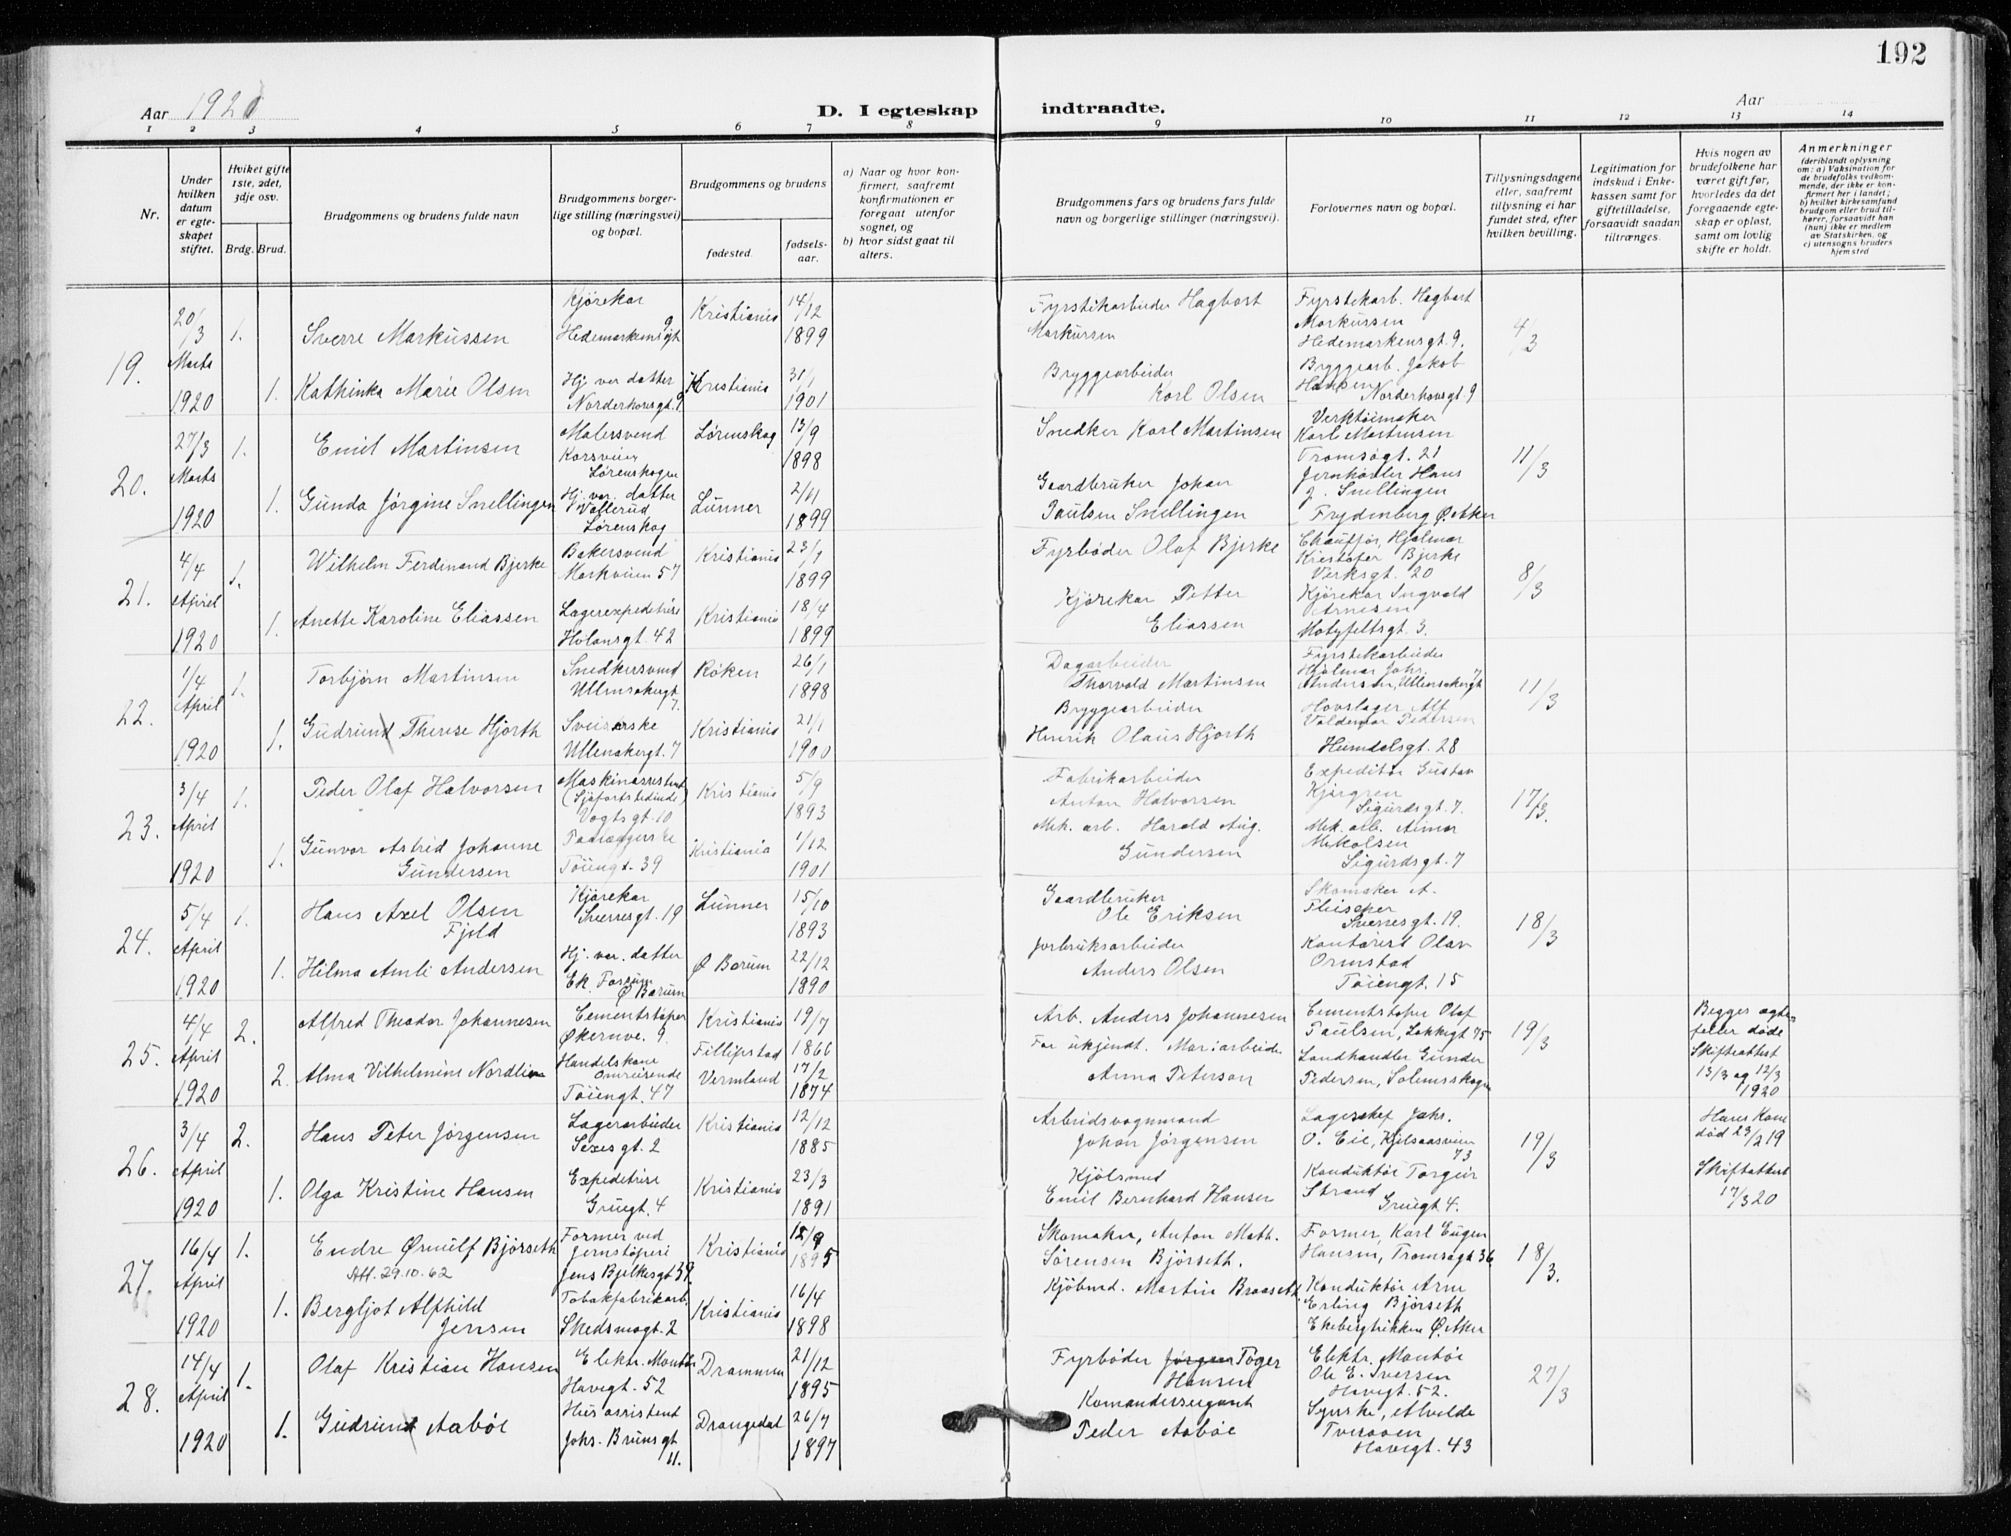 192
Aar 1920
D. I egteskap indtraadte.
Aar
1 2 3 4 5 6 7 8 9 10 11 12 13 14
Nr.
Under hvilken datum er egteskapet stiftet.
Hviket gifte 1ste, 2det, 3dje osv.
Brdg. Brud.
Brudgommens og brudens fulde navn
Brudgommens borgerlige stilling (næringsvei) og bopæl.
Brudgommens og brudens
fødested. fødselsaar.
a) Naar og hvor konfirmert, saafremt konfirmationen er foregaat utenfor sognet, og
b) hvor sidst gaat til alters.
Brudgommens fars og brudens fars fulde navn og borgerlige stillinger (næringsvei).
Forlovernes navn og bopæl.
Tillysningsdagene eller, saafremt tillysning ei har fundet sted, efter hvilken bevilling.
Legitimation for indskud i Enkekassen samt for giftetilladelse, forsaavidt saadan tiltrænges.
Hvis nogen av brudefolkene har været gift før, hvorledes da det foregaaende egteskap er opløst, samt om lovlig skifte er holdt.
Anmerkninger (deriblandt oplysning om: a) Vaksination for de brudefolks vedkommende, der ikke er konfirmert her i landet; b) hvilket kirkesamfund brudgom eller brud tilhører, forsaavidt han (hun) ikke er medlem av Statskirken, og c) utensogns bruders hjemsted
19.
20/3 Marts 1920
1. Sverre Markussen
Kjørekar
Hedemarkensgt 9
Kristiania
14/12 1899
Fyrstikarbeider Hagbart Markussen
Fyrstikarb. Hagbart Markussen
Hedemarkensgt. 9.
4/3
1. Kathinka Marie Olsen
Hj. vær. datter
Norderhovsgt. 9
Kristiania
31/1 1901
Bryggearbeider
Karl Olsen
Bryggearb. Jakob Hansen
Norderhovsgt. 9
20.
27/3 Marts 1920
1. Emil Martinsen
Malersvend
Korsveien
Lørenskogen
Lørenskog
13/9 1898
Snedker Karl Martinsen
Verktøimaker
Karl Martinsen
Tromsøgt. 21
11/3
1. Gunda Jørgine Snellingen
Hj. vær. datter
Vallerud
Lørenskog
Lunner
2/11 1899
Gaardbruker Johan
Paulsen Snellingen
Jernhøvler Hans
J. Snellingen
Frydenberg Ø. Aker
21.
4/4 April 1920
1. Wilhelm Ferdinand Bjerke
Bakersvend
Markveien 57
Kristiania
1899
Fyrbøder Olaf Bjerke
Chauffør, Hjalmar
Kristofer Bjerke
Verksgt. 20
8/3
1. Anette Karoline Eliassen
Lagerexpeditrise
Holansgt. 42
Kristiania
18/4 1899
Kjørekar Petter
Eliassen
Kjørekar Ingvald
Arnesen
Motzfeltsgt. 3.
22.
1/4 April 1920
1. Torbjørn Martinsen
Snedkersvend
Ullensakergt. 7.
Røken
26/1 1898
Dagarbeider
Thorvald Martinsen
Fyrstikarbeider
Hjalmar Johs.
Andersen, Ullensakergt 7
11/3
1. Gudrun Therese Hjorth
Sveiserske
Ullensakergt. 7
Kristiania
21/1 1900
Bryggearbeider
Henrik Olaus Hjorth
Hovslager Alf
Valdemar Pedersen
Humdalsgt. 28
23.
3/4 April 1920
1. Peder Olaf Halvorsen
Maskinassistent
Vogtsgt. 10
Kristiania
5/9 1893
Fabrikarbeider
Anton Halvorsen
Expeditør Gustav
Kjørgren
Sigurdsgt. 7.
17/3.
1. Gunvor Astrid Johanne
Gundersen
Tøiengt. 39
Kristiania
1/12 1901
Mek. arb. Harald Aug.
Gundersen
Mek. arb. Aimar
Mikolsen
Sigurdsgt. 7
24.
5/4 April 1920
1. Hans Axel Olsen
Fjeld
Kjørekar
Sverresgt. 19
Lunner
15/10 1893
Gaardbruker
Ole Eriksen
Skomaker A.
Sverresgt. 19.
18/3
1. Hilma Amli Andersen
Hj. vær. datter
Ø Bærum
Ø Bærum
22/12 1890
Jorbruksarbeider
Anders Olsen
Kontorist Olav
Ormstad
Tøiengt. 15
25.
4/4 April 1920
2. Alfred Theodor Johannesen
Cementstøper
Økernve. 9.
Kristiania
19/7 1866
Arb. Anders Johannesen
Cementstøper Olaf
Paulsen, Lakkegt 75
19/3
Begges ægtefeller døde
Skifteattest
13/3 og 12/3
1920
2. Alma Vilhelmine Nordlin
Handelskone
Omreisende
Tøiengt. 47
Fillipstad
Vermland
17/2 1874
Far ukjendt. Mor: arbeider
Anna Peterson
Landhandler Gunder
Pedersen, Solemsskogen
26.
3/4 April 1920
2. Hans Peter Jørgensen
Lagerarbeider
Sexesgt. 2
Kristiania
12/12 1885
Arbeidsvognmand
Johan Jørgensen
Lagerchef Johs.
O. Eie, Kjelsaasveien
73
19/3
Hans Kone
død 23/2 19
Skifteattest
17/3 20
1. Olga Kristine Hansen
Expeditrise
Gruegt. 4
Kristiania
23/3 1891
Kjølsmed
Emil Bernhard Hansen
Konduktør Torgeir
Strand
Gruegt. 4.
27.
16/4 April 1920
1. Endre Ørnulf Bjørseth
Att. 29.10.62
Former ved
Jernstøperi
Jens Bjelkesgt 39
Kristiania
12/9 1895
Skomaker, Anton Math.
Sørensen Bjørseth.
Former, Karl Eugen
Hansen, Tromsøgt 36
18/3.
1. Bergljot Alfhild
Jensen
Tobakfabrikarb.
Skedsmogt. 2
Kristiania
16/4 1898
Kjøbmd. Martin Braaseth
Konduktør Arne
Erling Bjørseth
Ekebergtrikken Ø. Aker
28.
14/4 April 1920
1. Olaf Kristian Hansen
Elektr. Montør
Havegt. 52
Drammen
21/12 1895
Fyrbøder Jørgen Toger
Hansen
Elektr. Montør
Ole E. Iversen
Havegt. 52.
27/3
1. Gudrun Aabøe
Husassistent
Johs. Brunsgt
11.
Drangedal
26/7 1897
Komandersergant
Peder Aabøe
Syerske, Alvilde
Tveraaen
Havegt. 43